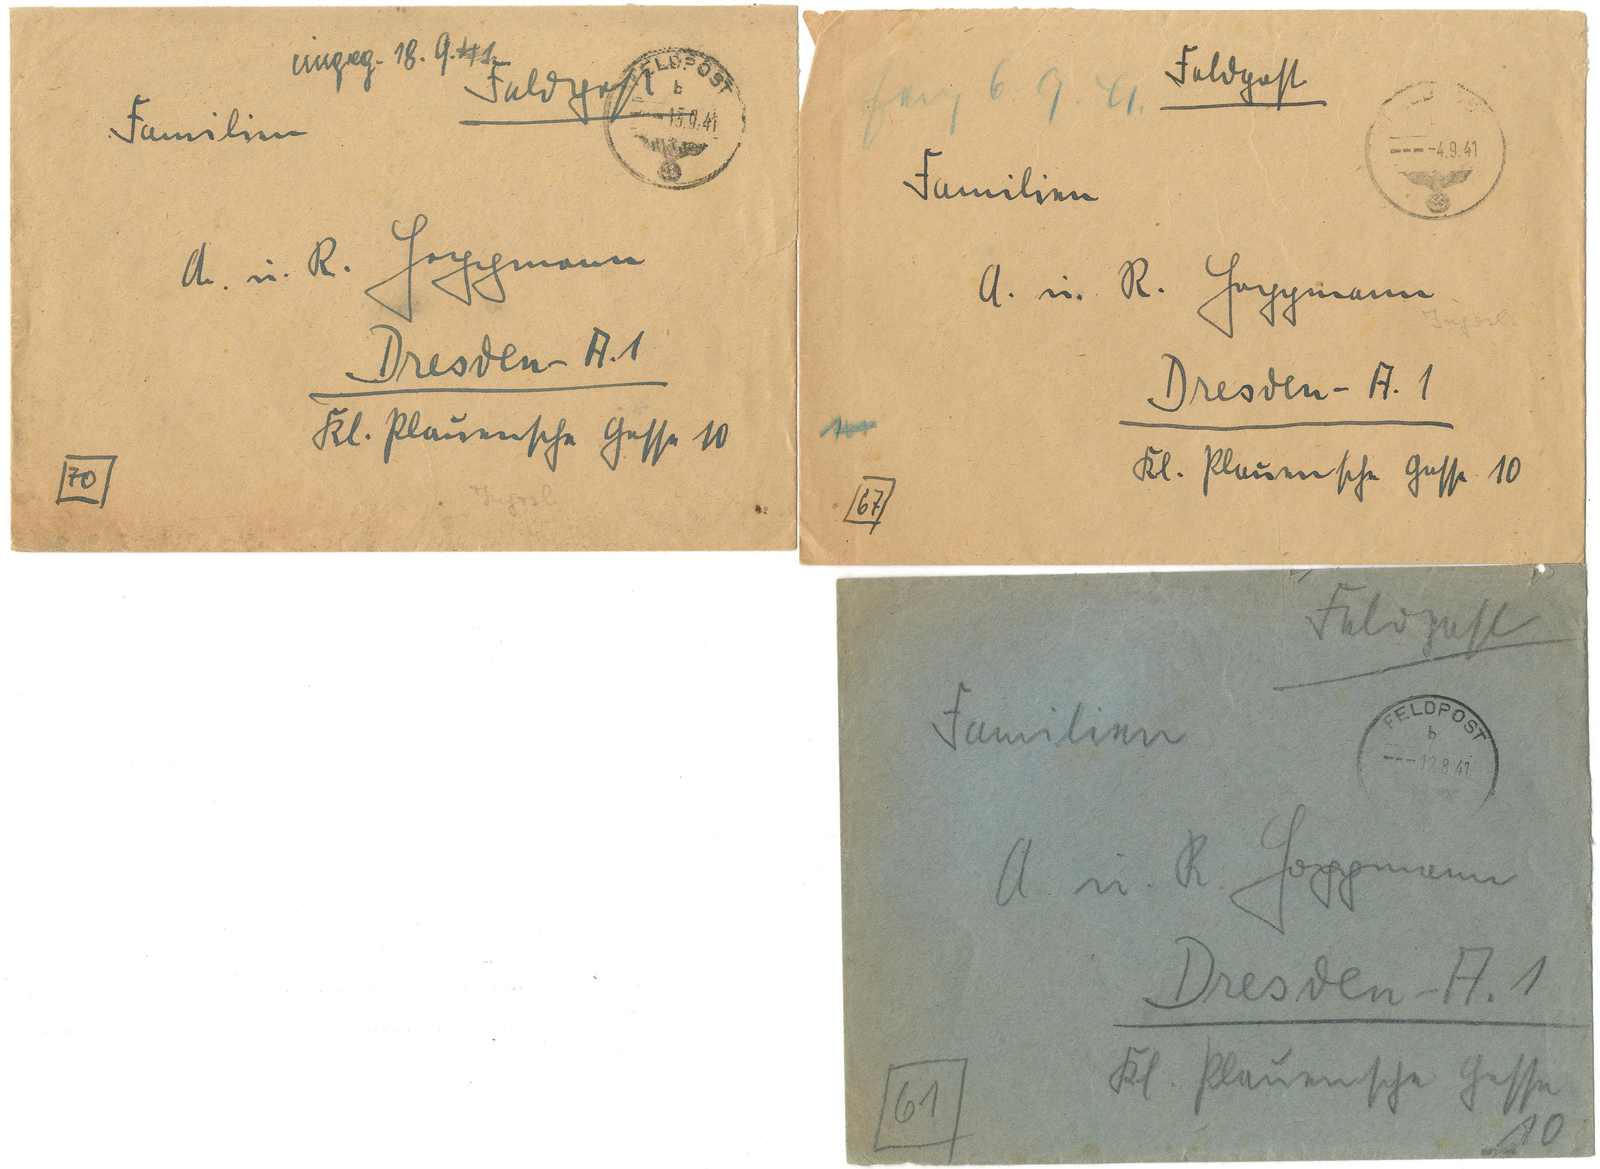 eingeg. 18.9.41.
Feldpost
FELDPOST
b
15.9.41
Familien
A. u. R. Hoppmann
Dresden-A.1
Kl. Plauensche Gasse 10
70
6 9. 41.
Feldpost
-4.9.41
Familien
A. u. R. Hoppmann
Dresden-A.1
Kl. Plauensche Gasse 10
67
Feldpost
FELDPOST
b
12.8.41
Familien
A. u. R. Hoppmann
Dresden-A.1
Kl. Plauensche Gasse
10
61